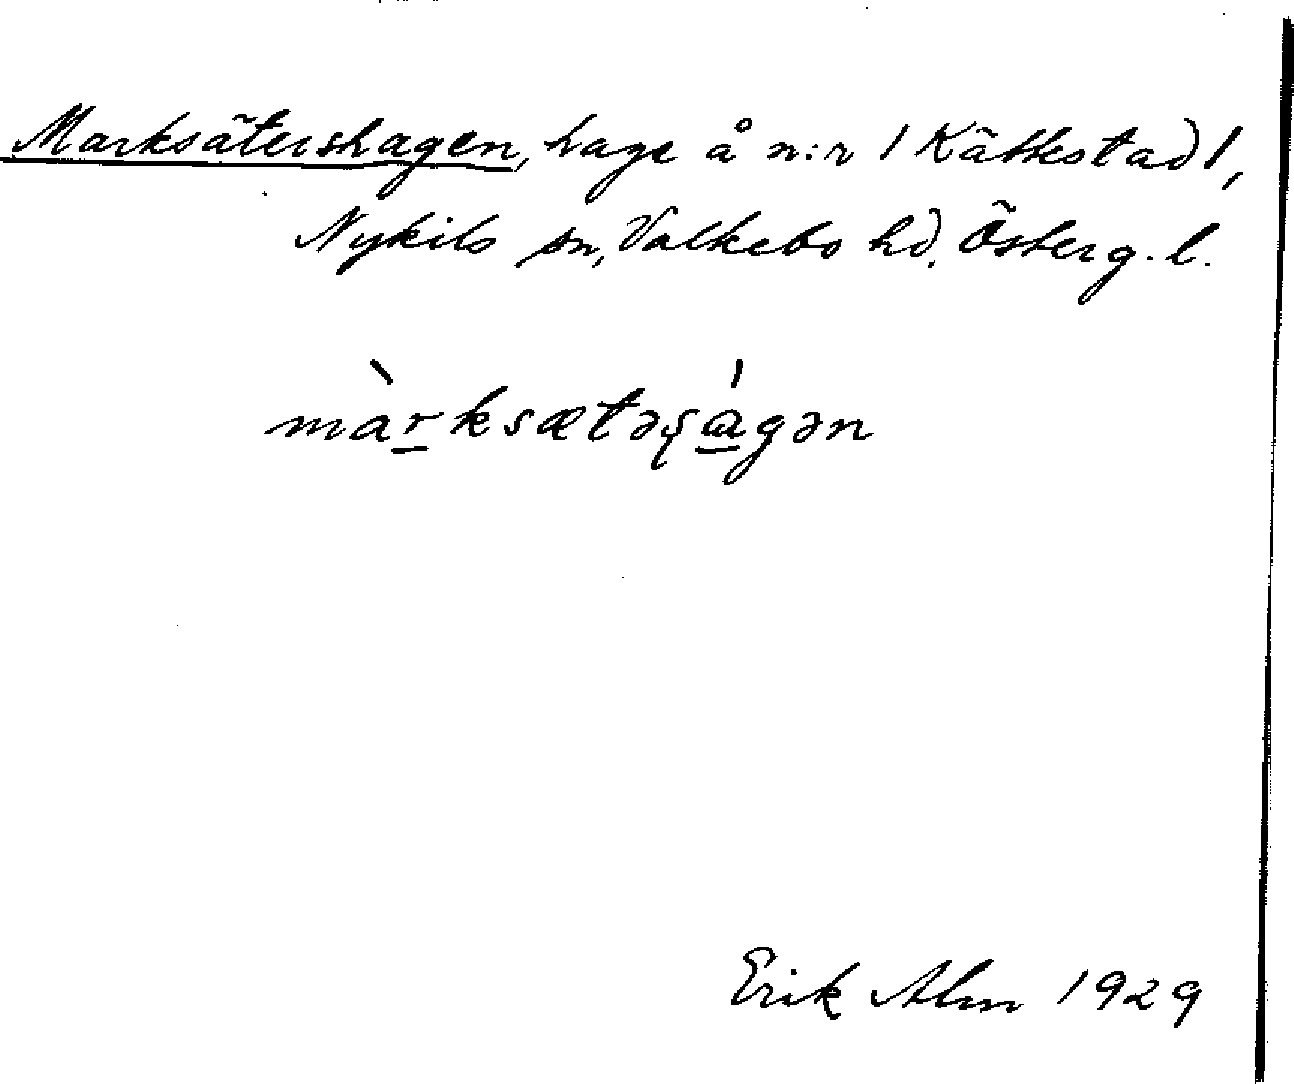 Marksätershagen, hage å n:r 1 Kättestad 1,
Nykils sn, Valkebo hd. Österg. l.
màr̲ksætəʂɑ̲́gən
Erik Alm 1929